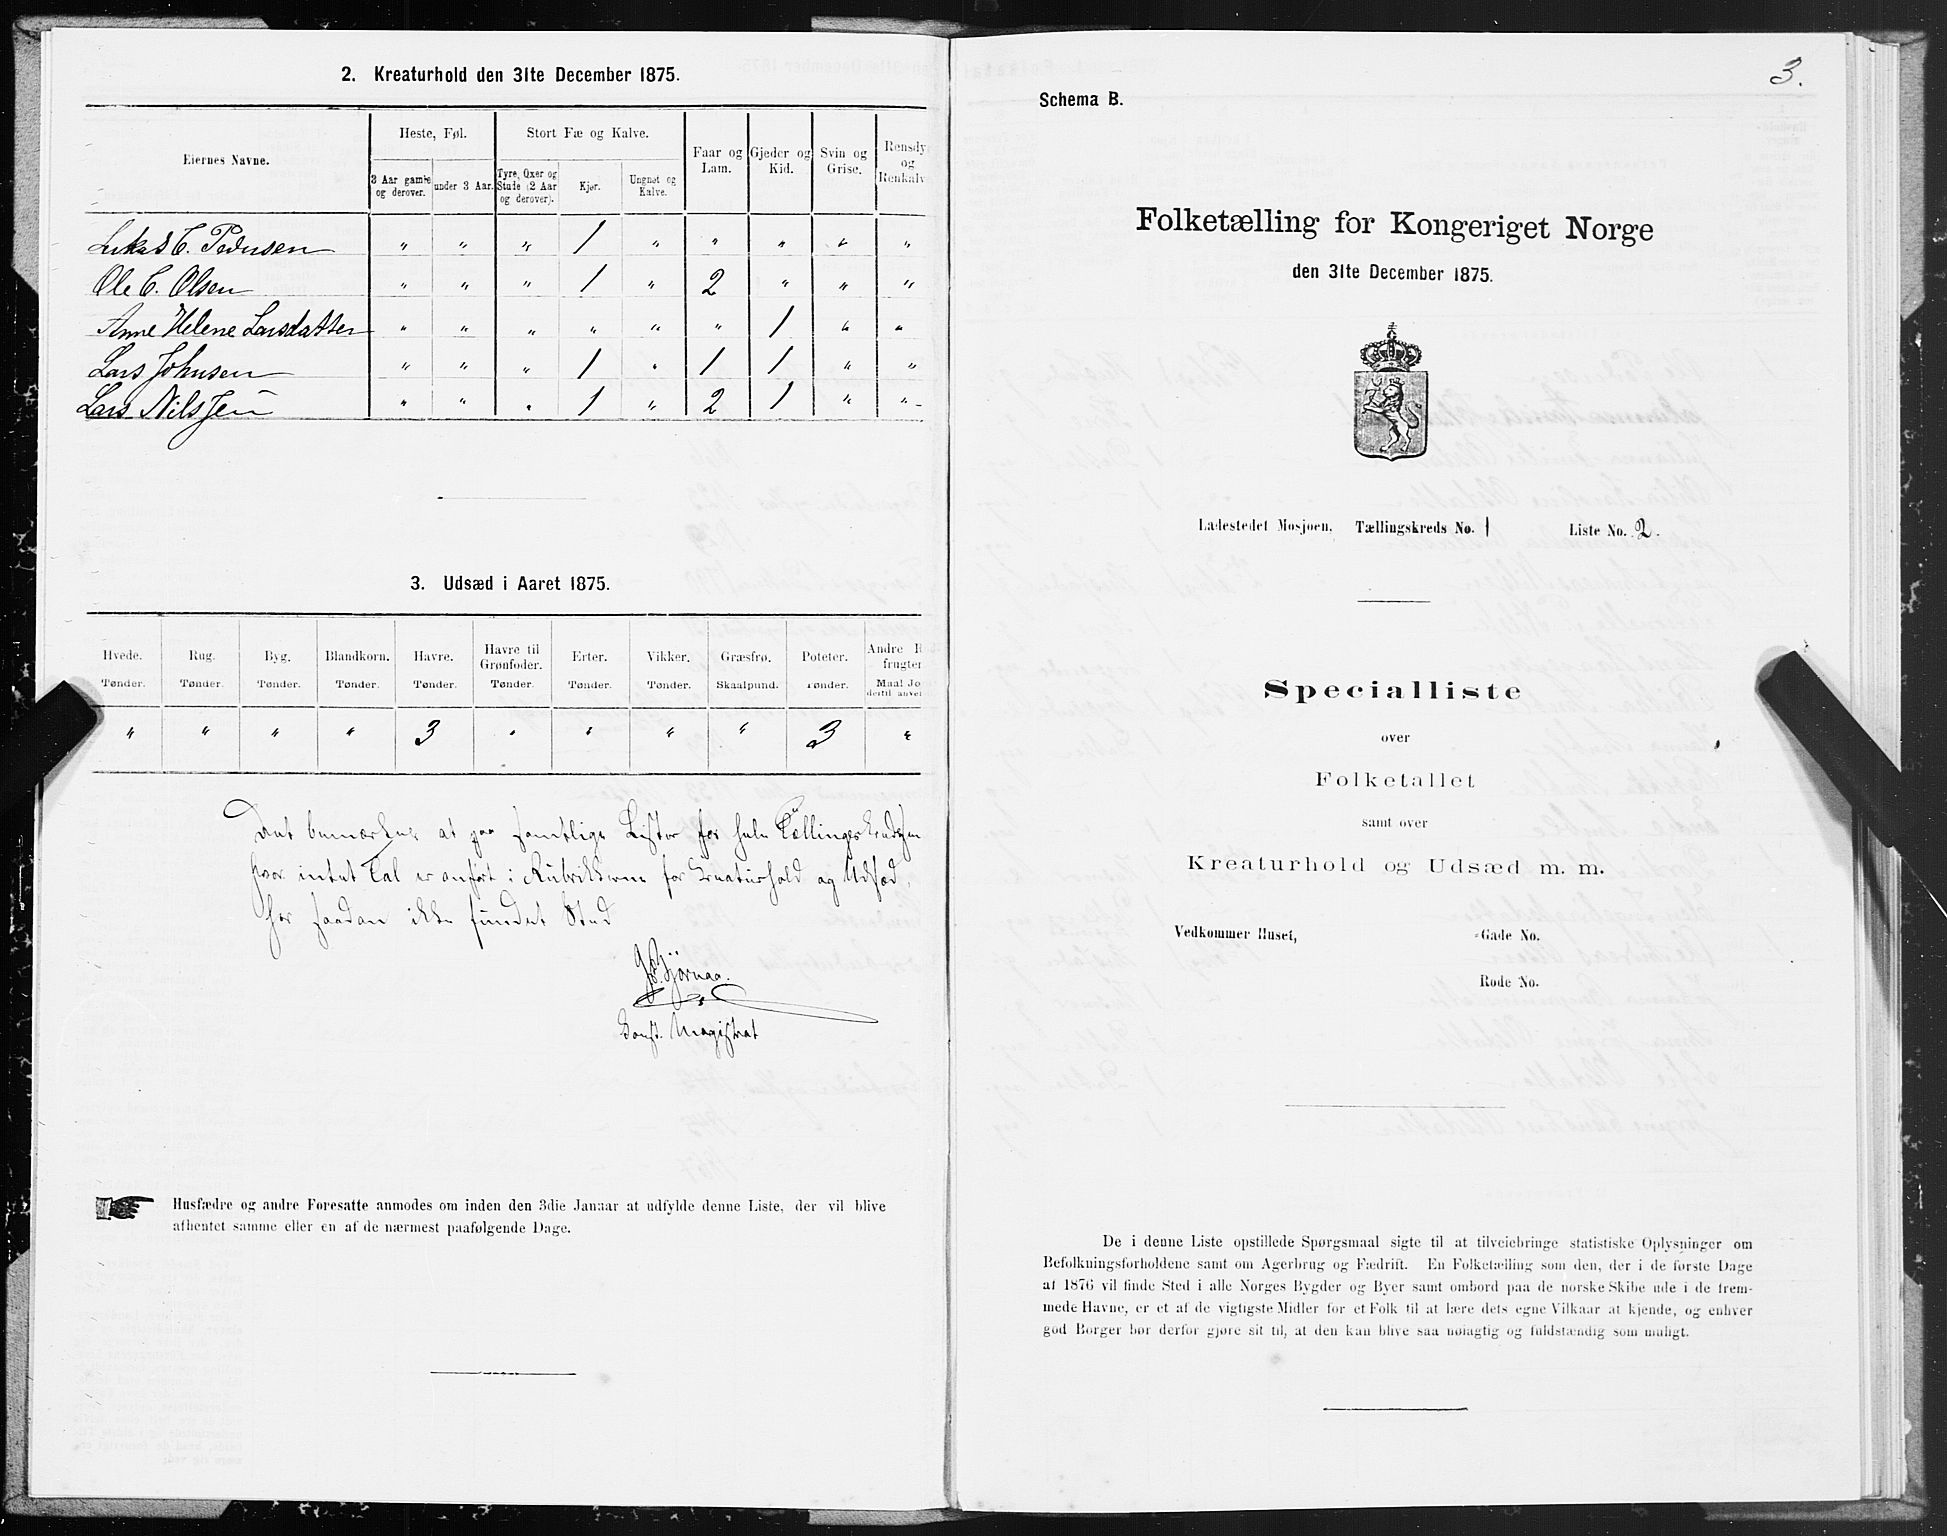 2. Kreaturhold den 31te December 1875.
Eiernes Navne.
Heste, Føl.
Stort Fæ og Kalve.
Faar og Lam.
Gjeder og Kid.
Svin og Grise.
Rensdy og Renkalv
3 Aar gamle og derover.
under 3 Aar.
Tyre, Oxer og Stude (2 Aar og derover).
Kjør.
Ungnøt og Kalve.
Lukas C. Pedersen " " " 1 " " " " "
Ole C. Olsen " " " 1 " 2 " " "
Anne Helene Larsdatter " " " " " " 1 " "
Lars Johnsen " " " 1 " 1 1 " "
Lars Nilssen " " " 1 " 2 1 " "
3. Udsæd i Aaret 1875.
Hvede. Rug. Byg. Blandkorn. Havre. Havre til Grønfoder. Erter. Vikker. Græsfrø. Poteter. Andre R frugter
Tønder. Tønder. Tønder. Tønder. Tønder. Tønder. Tønder. Tønder. Skaalpund. Tønder. Maal Jo dertil anven
" " " " 3 " " " " 3 "
Det bemærkes at paa samtlige Lister for hele Tællingskredsen
hvor intet Tal er anført i Rubrikkerne for Kreaturhold og Udsæd,
har saadan ikke fundet Sted
Bjørnaa.
Const. Magistrat
Husfædre og andre Foresatte anmodes om inden den 3die Januar at udfylde denne Liste, der vil blive
afhentet samme eller en af de nærmest paafølgende Dage.
3.
Schema B.
Folketælling for Kongeriget Norge
den 31te December 1875.
Ladestedet Mosjøen, Tællingskreds No. 1 Liste No. 2.
Specialliste
over
Folketallet
samt over
Kreaturhold og Udsæd m. m.
Vedkommer Huset, Gade No.
Rode No.
De i denne Liste opstillede Spørgsmaal sigte til at tilveiebringe statistiske Oplysninger om
Befolkningsforholdene samt om Agerbrug og Fædrift. En Folketælling som den, der i de første Dage
af 1876 vil finde Sted i alle Norges Bygder og Byer samt ombord paa de norske Skibe ude i de frem-
mede Havne, er et af de vigtigste Midler for et Folk til at lære dets egne Vilkaar at kjende, og enhver
god Borger bør derfor gjøre sit til, at den kan blive saa nøiagtig og fuldstændig som muligt.